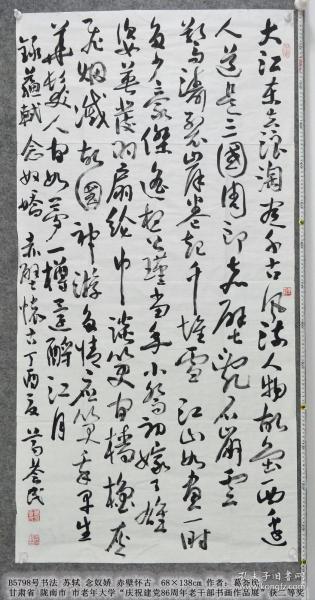 大江东去浪淘尽千古风流人物故垒西边
人道是三國周郎赤壁乱石崩雲
驚涛裂岸卷起千堆雪江山如画一时
多少豪傑遥想公瑾当年小喬初嫁了雄
姿英發羽扇纶巾談笑间樯橹灰
飞烟滅故國神游多情应笑我早生
華髮人间如夢一樽還酹江月
録蘇軾念奴嬌 赤壁懷古 丁酉夏 葛荟民
B5798号书法 苏轼 念奴娇 赤壁怀古 68×138cm 作者：葛荟民
甘肃省 陇南市 市老年大学“庆祝建党86周年老干部书画作品展”获二等奖